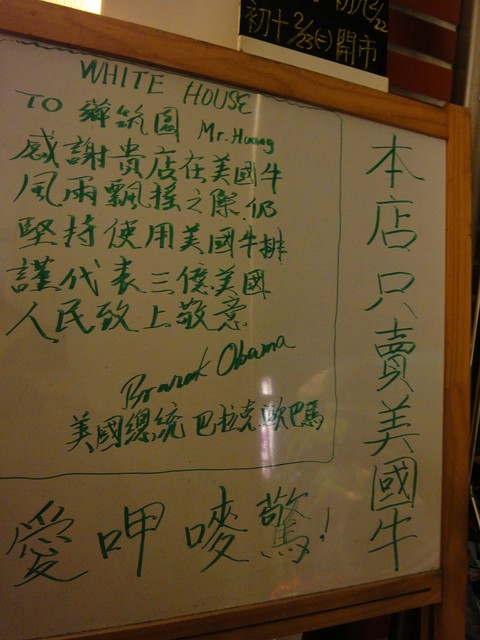 初十2/23(一)開市
WHITE HOUSE
TO 鄉筑園 Mr. Huang
感謝貴店在美國牛
風雨飄搖之際仍
堅持使用美國牛排
謹代表三億美國
人民致上敬意
Barack Obama
美國總統 巴拉克歐巴馬
本店只賣美國牛
愛呷嘜驚!